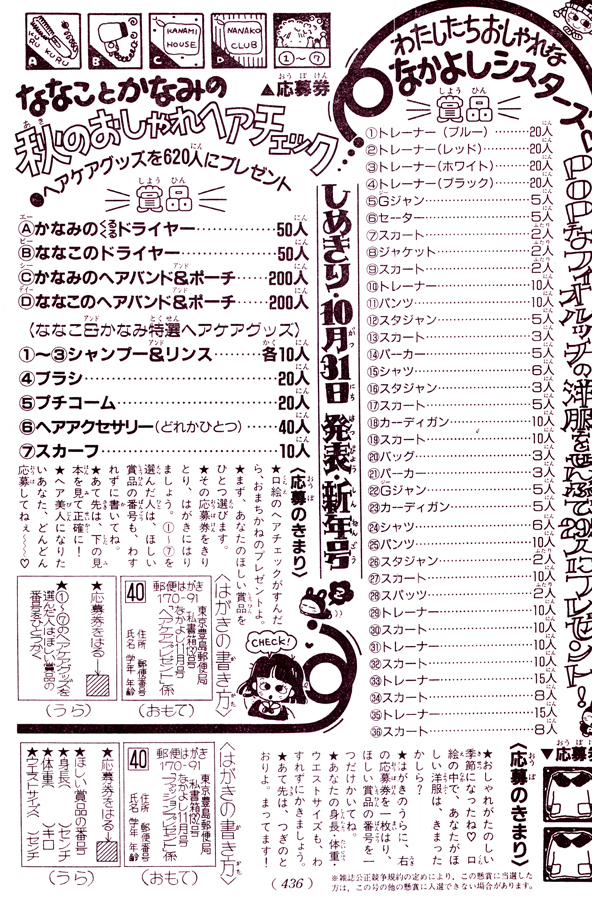 わたしたちおしゃれな
なかよしシスターズ
POPなフィオルッチの洋服を
291人にプレゼント!
賞品
①トレーナー(ブルー)………20人
②トレーナー(レッド)………20人
③トレーナー(ホワイト)………20人
④トレーナー(ブラック)………20人
⑤Gジャン………5人
⑥セーター………5人
⑦スカート………2人
⑧ジャケット………2人
⑨スカート………2人
⑩トレーナー………10人
⑪パンツ………10人
⑫スタジャン………5人
⑬スカート………3人
⑭パーカー………5人
⑮シャツ………6人
⑯スタジャン………3人
⑰スカート………5人
⑱カーディガン………10人
⑲スカート………10人
⑳バッグ………3人
㉑パーカー………3人
㉒Gジャン………5人
㉓カーディガン………5人
㉔シャツ………6人
㉕パンツ………10人
㉖スタジャン………2人
㉗スカート………10人
㉘スパッツ………2人
㉙トレーナー………10人
㉚スカート………10人
㉛トレーナー………10人
㉜スカート………10人
㉝トレーナー………15人
㉞スカート………8人
㉟トレーナー………15人
㊱スカート………8人
しめきり・10月31日 発表・新年号
KURU KURU
KANAMI HOUSE
NANAKO CLUB
A
B
C
D
①〜⑦
▲応募券
ななことかなみの
秋のおしゃれヘアチェック…
●ヘアケアグッズを620人にプレゼント
賞品
Ⓐかなみのくるくるドライヤー………50人
Ⓑななこのドライヤー………50人
Ⓒかなみのヘアバンド&ポーチ………200人
Ⓓななこのヘアバンド&ポーチ………200人
〈ななこ&かなみ特選ヘアケアグッズ〉
①〜③シャンプー&リンス………各10人
④ブラシ………20人
⑤プチコーム………20人
⑥ヘアアクセサリー(どれかひとつ)………40人
⑦スカーフ………10人
〈応募のきまり〉
★口絵のヘアチェックがすんだ
ら、おまちかねのプレゼントよ。
★まず、あなたのほしい賞品を
ひとつ選びます。
★その応募券をきり
とり、はがきにはり
ましょう。①〜⑦を
選んだ人は、ほしい
賞品の番号も、わす
れずに書いてね。
★あて先は、下の見
本を見て正確に!
★ヘア美人になりた
いあなた、どんどん
応募してねぇ〜〜♡
〈はがきの書き方〉
郵便はがき
170-91
40
東京豊島郵便局
私書箱139号
なかよし11月号
ヘアケアプレゼント係
住所 郵便番号
氏名 学年 年齢
(おもて)
★応募券をはる→
★①〜⑦のヘアケアグッズを
選んだ人はほしい賞品の
番号をひとつかく。
(うら)
CHECK!
▼応募券
〈応募のきまり〉
★おしゃれがたのしい
季節になったね♡ ロ
絵の中で、あなたがほ
しい洋服は、きまった
かしら?
★はがきのうらに、右
の応募券を一枚はり、
ほしい賞品の番号を一
つだけかいてね。
★あなたの身長・体重・
ウエストサイズも、わ
すれずにかきましょう。
★あて先は、つぎのと
おりよ。まってます!
〈はがきの書き方〉
郵便はがき
170-91
40
東京豊島郵便局
私書箱132号
なかよし11月号
ファッションプレゼント係
住所 郵便番号
氏名 学年 年齢
(おもて)
★応募券をはる→
★ほしい賞品の番号
★身長( )センチ
★体重( )キロ
★ウエストサイズ( )センチ
(うら)
(436)
※雑誌公正競争規約の定めにより、この懸賞に当選した
方は、この号の他の懸賞に入選できない場合があります。